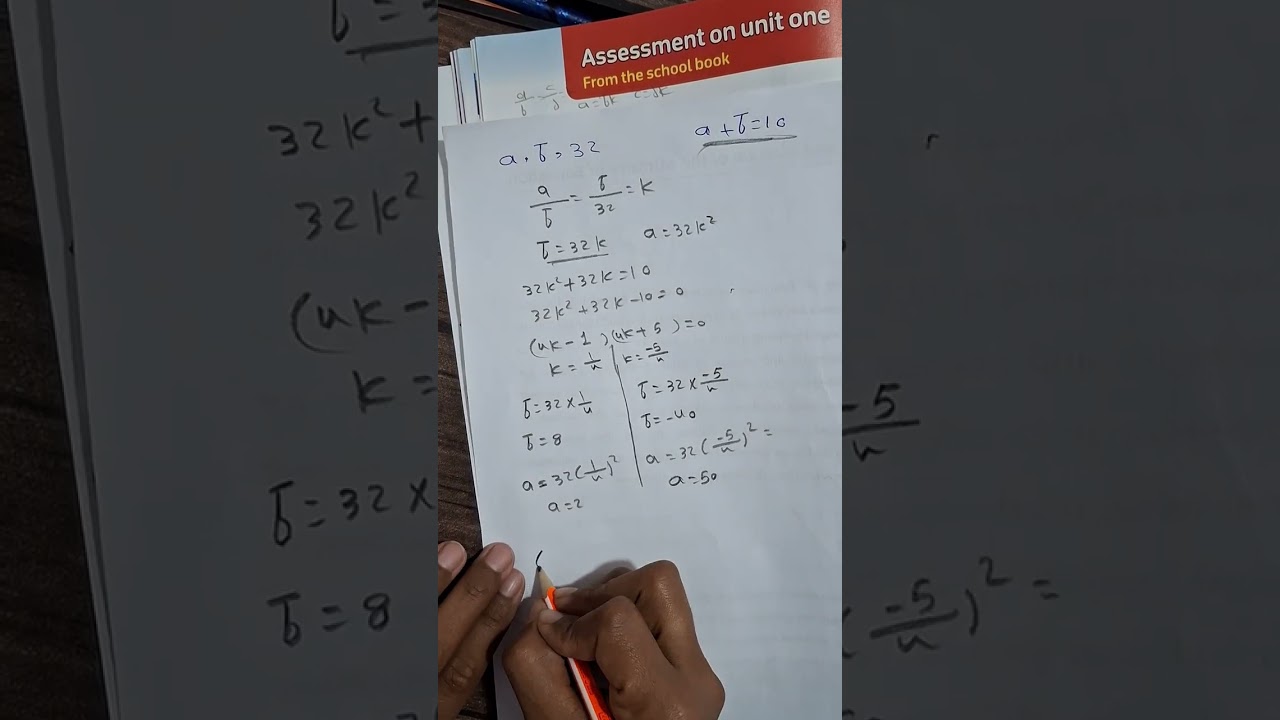 Assessment on unit one
From the school book
a/b = c/d a=bk c=dk
a, b, 32
a+b=10
a/b = b/32 = k
b=32k a=32k²
32k²+32k=10
32k²+32k-10=0
(4k-1)(4k+5)=0
k=1/4 k=-5/4
b=32×1/4
b=8
a=32(1/4)²
a=2
b=32×-5/4
b=-40
a=32(-5/4)²=
a=50
(